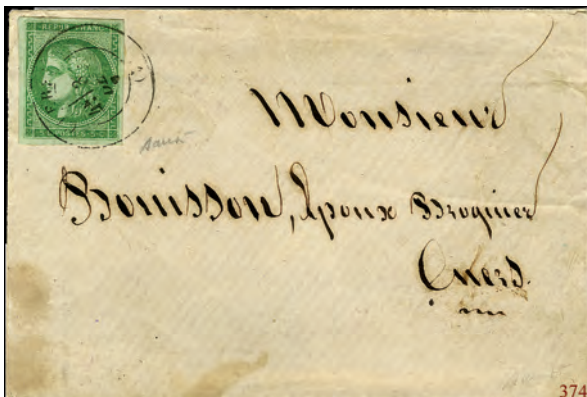 REPUB. FRANC.
Monsieur
Bouisson, Epoux Broquier
Cuers.
374